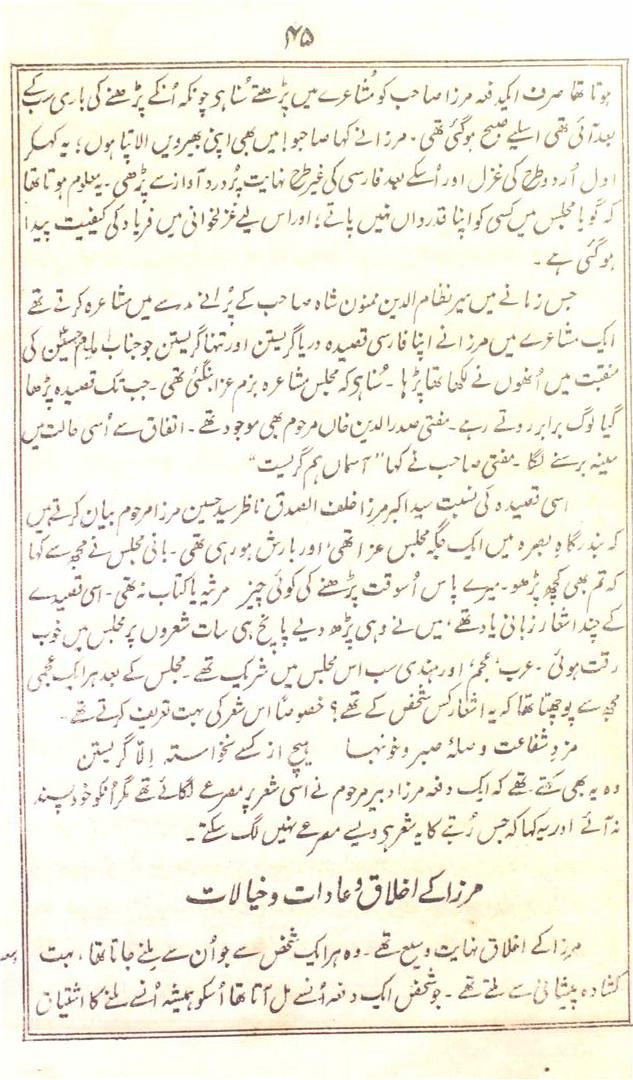 ۴۵
ہوتا تھا صرف ایکدفعہ مرزا صاحب کو مشاعرے میں پڑھتے سُنا ہی چونکہ اُنکے پڑھنے کی باری سب کے
بعد آئی تھی اسلیے صبح ہو گئی تھی۔ مرزا نے کہا صاحبو! میں بھی اپنی بھیرویں الاپتا ہوں؛ یہ کہکر
اول اُردو طرح کی غزل اور اُسکے بعد فارسی کی غیر طرح نہایت پُر درد آواز سے پڑھی۔ یہ معلوم ہوتا تھا
کہ گویا مجلس میں کسی کو اپنا قدرداں نہیں پاتے؛ اور اس لیے غزلخوانی میں فریاد کی کیفیت پیدا
ہو گئی ہے۔
جس زمانے میں میر نظام الدین ممنون شاہ صاحب کے پُرانے مدرسے میں مشاعرہ کرتے تھے
ایک مشاعرے میں مرزا نے اپنا فارسی قصیدہ دریا گریستن اور تنہا گریستن جو جناب امام حسین کی
منقبت میں اُنھوں نے لکھا تھا پڑہا۔ سُنا ہی کہ مجلس مشاعرہ بزم عزا بنگئی تھی۔ جب تک قصیدہ پڑھا
گیا لوگ برابر روتے رہے۔ مفتی صدر الدین خاں مرحوم بھی موجود تھے۔ اتفاق سے اُسی حالت میں
مینہ برسنے لگا۔ مفتی صاحب نے کہا "آسماں ہم گریست"
اسی قصیدہ کی نسبت سید اکبر مرزا خلف الصدق ناظر سید حسین مرزا مرحوم بیان کرتے ہیں
کہ بندرگاہ بصرہ میں ایک جگہ مجلس عزا تھی، اور بارش ہو رہی تھی۔ بانی مجلس نے مجھ سے کہا
کہ تم بھی کچھ پڑھو۔ میرے پاس اُسوقت پڑھنے کی کوئی چیز مرثیہ یا کتاب نہ تھی۔ اسی قصیدے
کے چند اشعار زبانی یاد تھے، میں نے وہی پڑھ دیے پانچ ہی سات شعروں پر مجلس میں خوب
رقت ہوئی۔ عرب، عجم، اور ہندی سب اس مجلس میں شریک تھے۔ مجلس کے بعد ہر ایک عجمی
مجھ سے پوچھتا تھا کہ یہ اشعار کس شخص کے تھے؟ خصوصاً اس شعر کی بہت تعریف کرتے تھے۔
مزدِ شفاعت و صلۂ صبر و خونبہا ہیچ از کسے نخواستہ اِلّا گریستن
وہ یہ بھی کہتے تھے کہ ایک دفعہ مرزا دبیر مرحوم نے اسی شعر پر مصرعے لگائے تھے مگر اُنکو خود پسند
نہ آئے اور یہ کہا کہ جس رُتبے کا یہ شعر ہی ویسے مصرعے نہیں لگ سکتے۔
مرزا کے اخلاق و عادات و خیالات
مرزا کے اخلاق نہایت وسیع تھے۔ وہ ہر ایک شخص سے جو اُن سے ملنے جاتا تھا، بہت
کشادہ پیشانی سے ملتے تھے۔ جو شخص ایک دفعہ اُنسے مل آتا تھا اُسکو ہمیشہ اُنسے ملنے کا اشتیاق